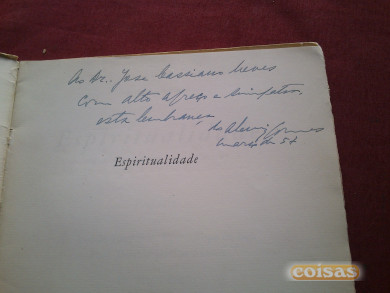 Ao Dr. José Cassiano Neves
com alto apreço e simpatia,
esta lembrança
do
março de 57
Espiritualidade
coisas